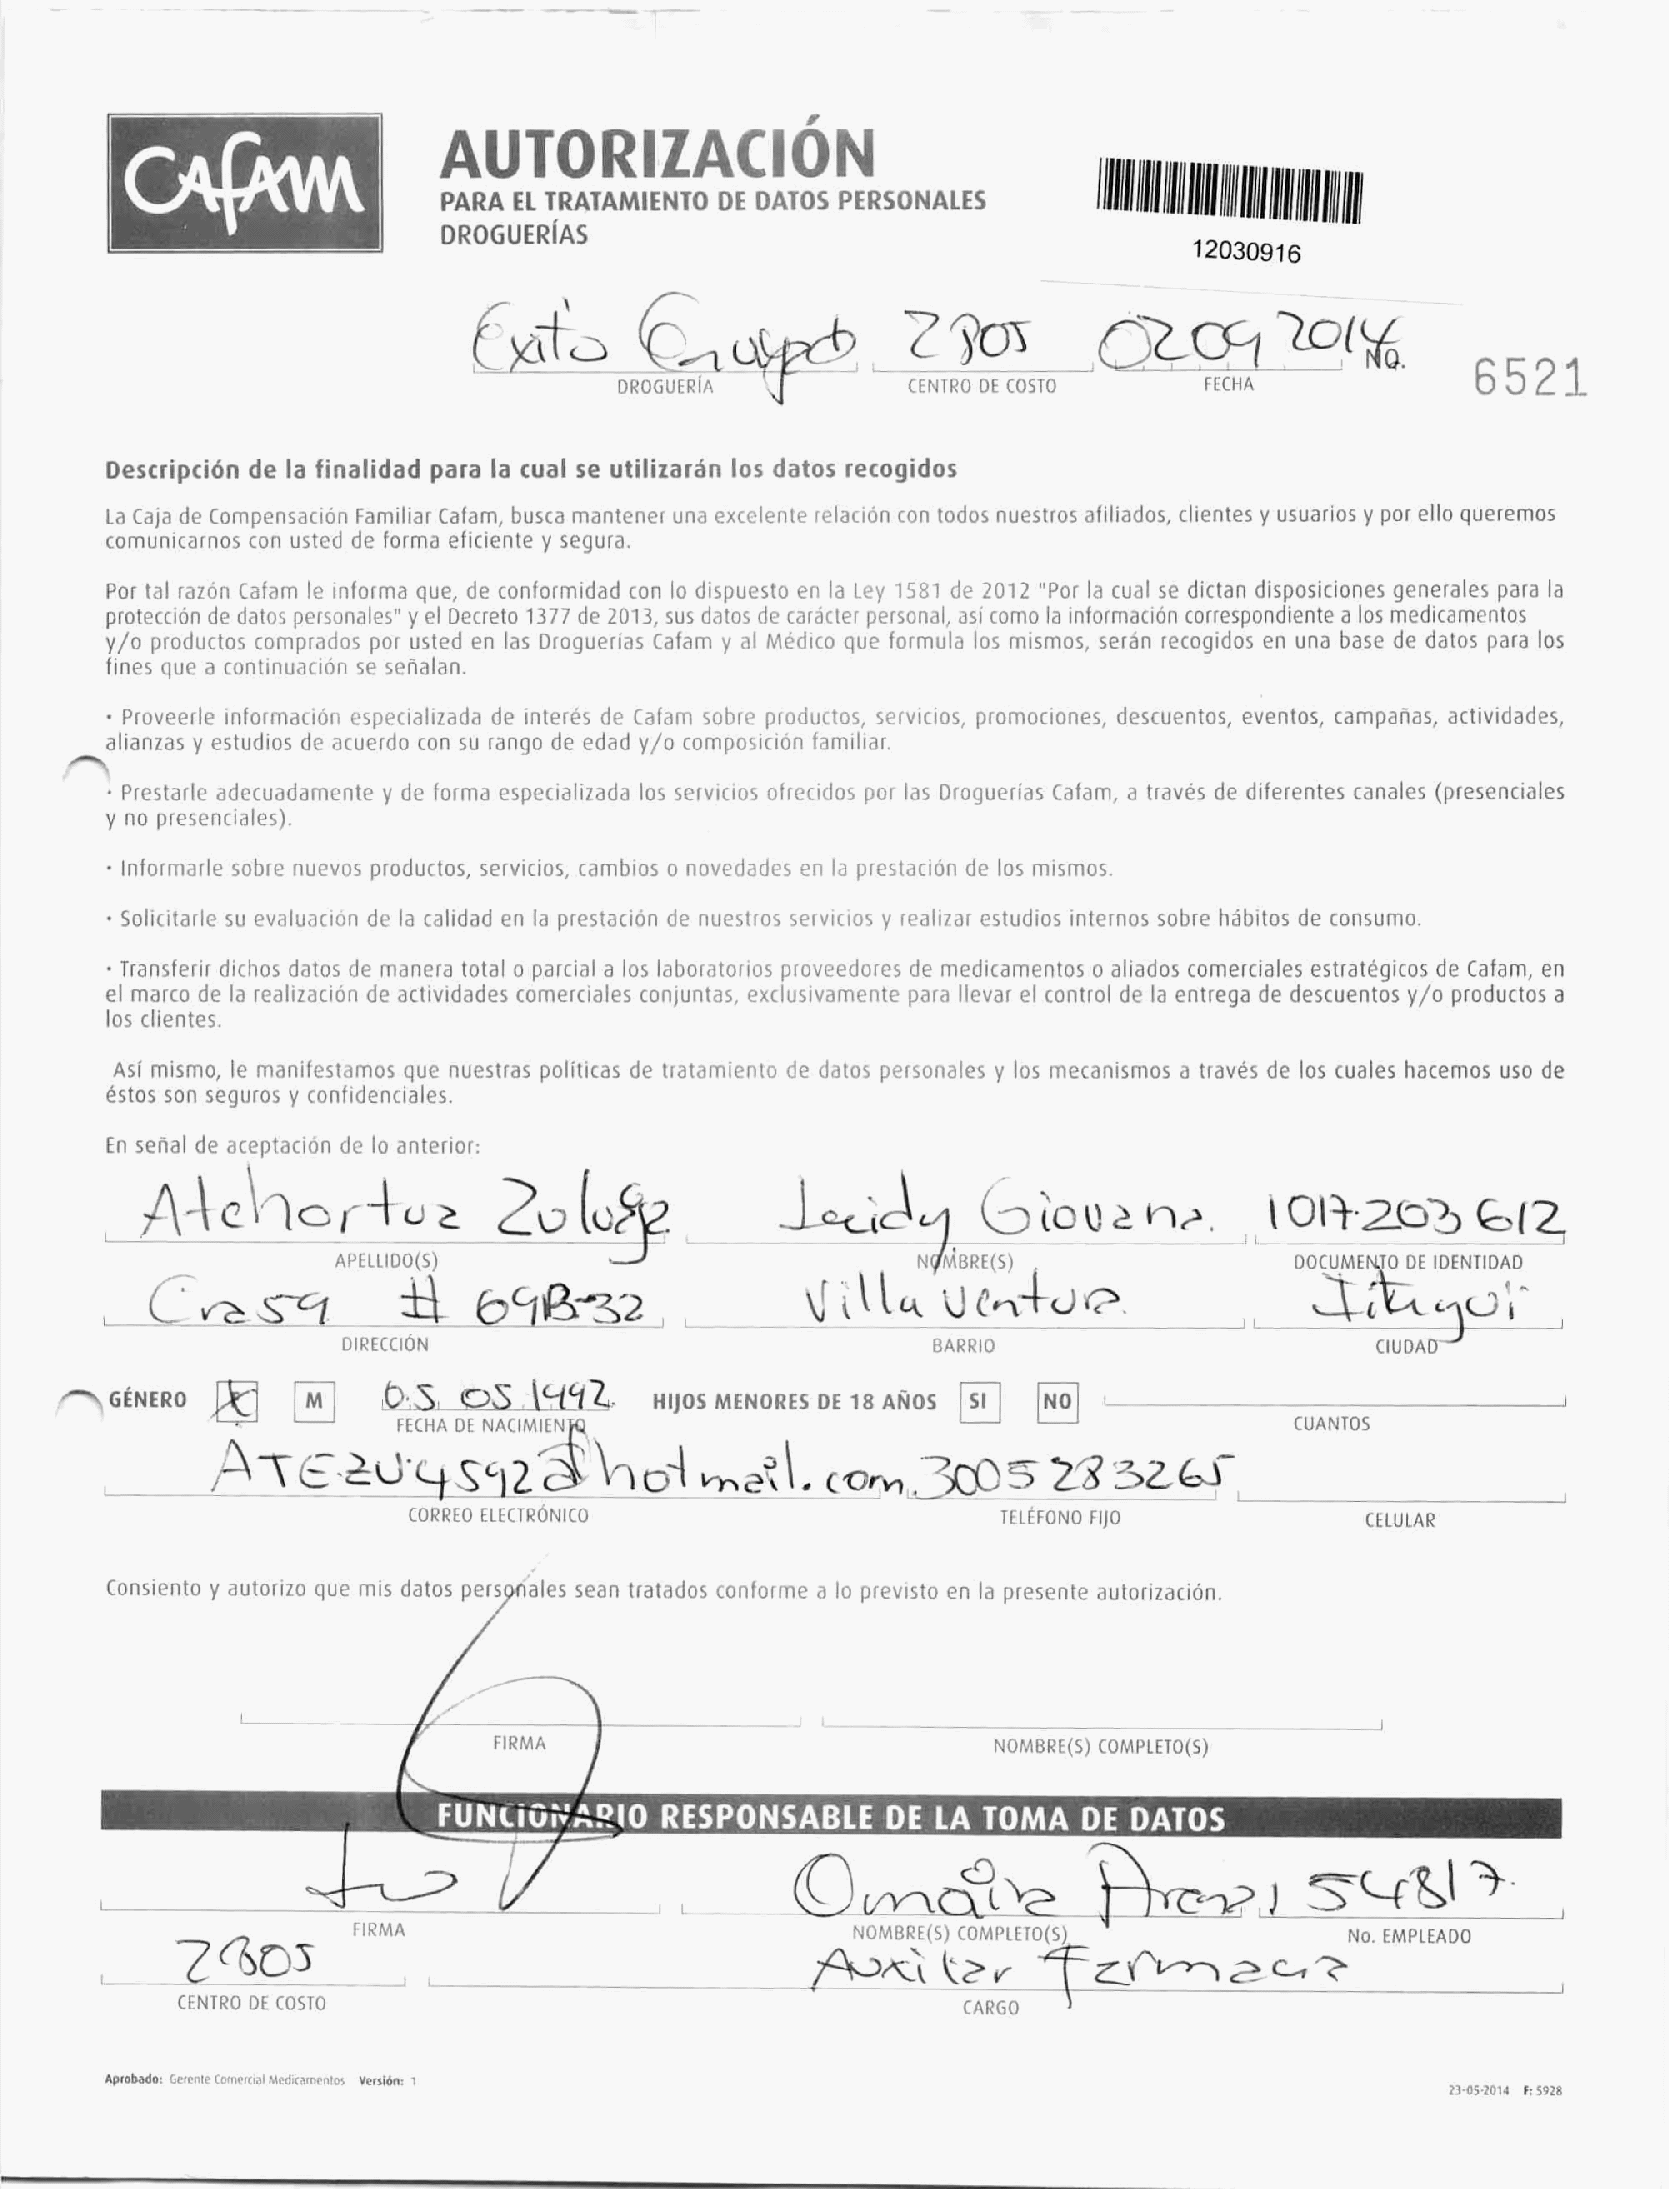 Cafam
AUTORIZACIÓN
PARA EL TRATAMIENTO DE DATOS PERSONALES
DROGUERÍAS
12030916
Exito 02 09 2014 No. 6521
DROGUERÍA CENTRO DE COSTO FECHA
Descripción de la finalidad para la cual se utilizarán los datos recogidos
La Caja de Compensación Familiar Cafam, busca mantener una excelente relación con todos nuestros afiliados, clientes y usuarios y por ello queremos
comunicarnos con usted de forma eficiente y segura.
Por tal razón Cafam le informa que, de conformidad con lo dispuesto en la Ley 1581 de 2012 "Por la cual se dictan disposiciones generales para la
protección de datos personales" y el Decreto 1377 de 2013, sus datos de carácter personal, así como la información correspondiente a los medicamentos
y/o productos comprados por usted en las Droguerías Cafam y al Médico que formula los mismos, serán recogidos en una base de datos para los
fines que a continuación se señalan.
· Proveerle información especializada de interés de Cafam sobre productos, servicios, promociones, descuentos, eventos, campañas, actividades,
alianzas y estudios de acuerdo con su rango de edad y/o composición familiar.
· Prestarle adecuadamente y de forma especializada los servicios ofrecidos por las Droguerías Cafam, a través de diferentes canales (presenciales
y no presenciales).
· Informarle sobre nuevos productos, servicios, cambios o novedades en la prestación de los mismos.
· Solicitarle su evaluación de la calidad en la prestación de nuestros servicios y realizar estudios internos sobre hábitos de consumo.
· Transferir dichos datos de manera total o parcial a los laboratorios proveedores de medicamentos o aliados comerciales estratégicos de Cafam, en
el marco de la realización de actividades comerciales conjuntas, exclusivamente para llevar el control de la entrega de descuentos y/o productos a
los clientes.
Así mismo, le manifestamos que nuestras políticas de tratamiento de datos personales y los mecanismos a través de los cuales hacemos uso de
éstos son seguros y confidenciales.
En señal de aceptación de lo anterior:
Atehortua Zuluaga Leidy Giovana. 1017.203 612
APELLIDO(S) NOMBRE(S) DOCUMENTO DE IDENTIDAD
Cra 59 # 69B-32 Villa Ventura Itagui
DIRECCIÓN BARRIO CIUDAD
GÉNERO M 05 05 1992 HIJOS MENORES DE 18 AÑOS SI NO
FECHA DE NACIMIENTO CUANTOS
ATEZU4592@hotmail.com 3005283265
CORREO ELECTRÓNICO TELÉFONO FIJO CELULAR
Consiento y autorizo que mis datos personales sean tratados conforme a lo previsto en la presente autorización.
FIRMA NOMBRE(S) COMPLETO(S)
FUNCIONARIO RESPONSABLE DE LA TOMA DE DATOS
Omaira 54817
FIRMA NOMBRE(S) COMPLETO(S) No. EMPLEADO
2805 Auxiliar Farmacia
CENTRO DE COSTO CARGO
Aprobado: Gerente Comercial Medicamentos Versión: 1
23-05-2014 F: 5928